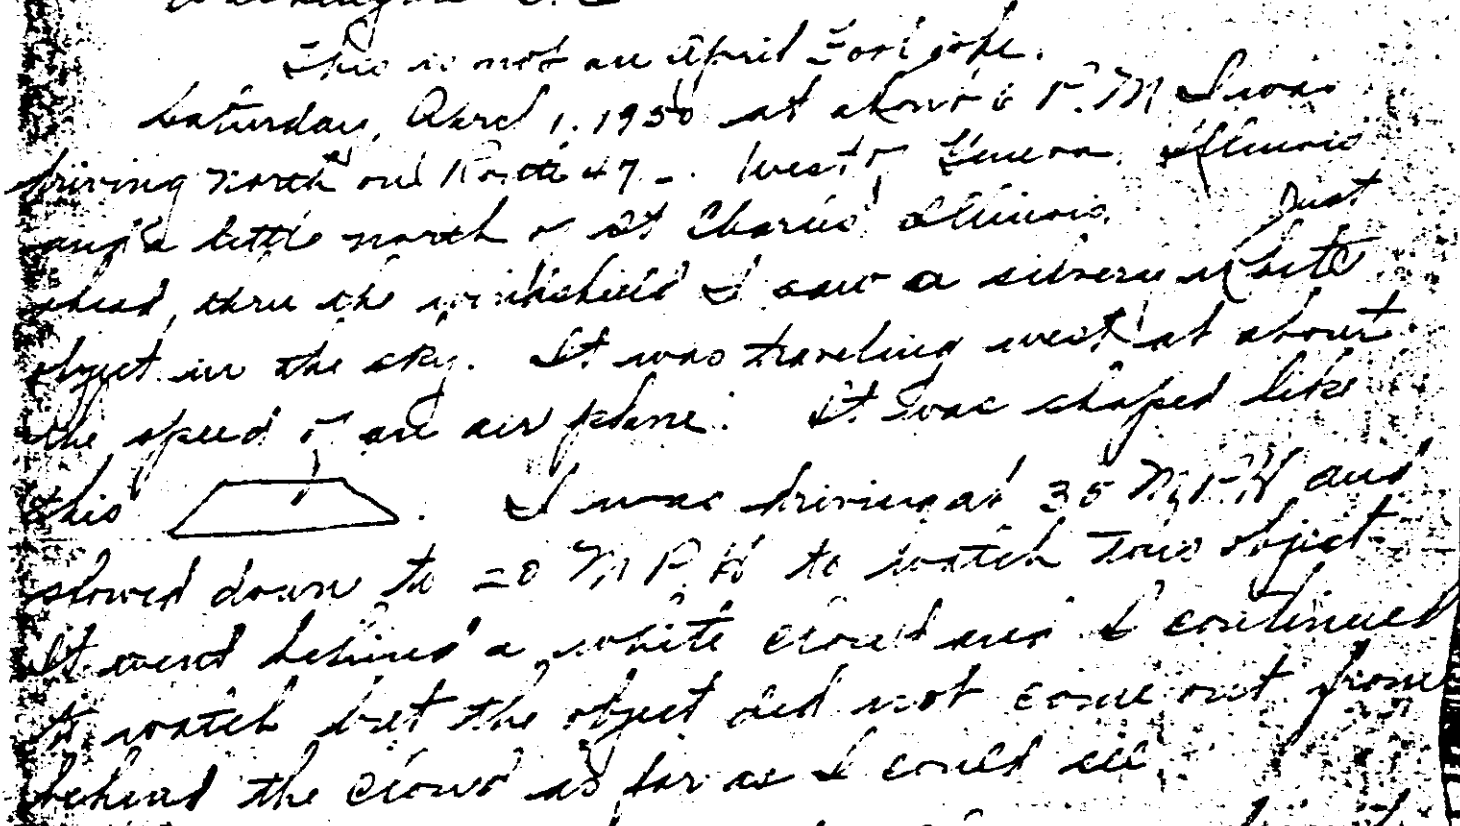 Washington D.C
This is not an April Fool joke.
Saturday, April 1, 1950 at about 6 P.M I was
driving north on Route 47 - West of Geneva, Illinois
and a little north of St Charles Illinois. Just
ahead, thru the windshield I saw a silvery white
object in the sky. It was traveling west at about
the speed of an airplane. It was shaped like
this . I was driving at 35 M.P.H and
slowed down to 20 M P.H to watch this object
It went behind a white cloud and I continued
to watch but the object did not come out from
behind the cloud as far as I could see.